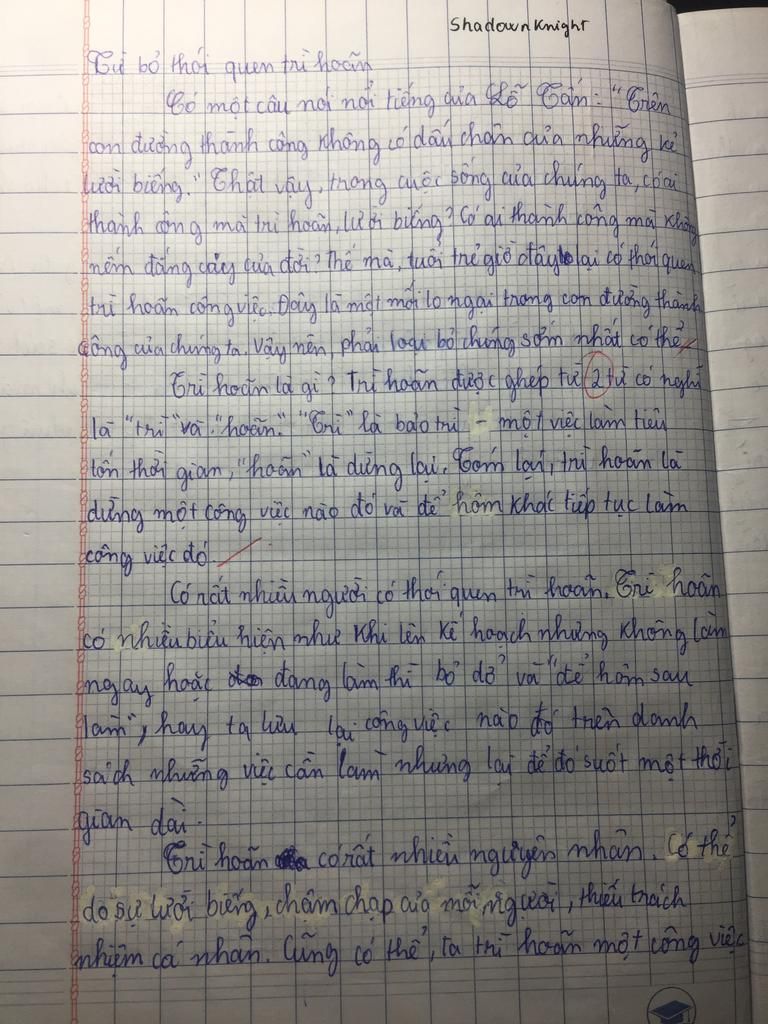 ShadownKnight
Từ bỏ thói quen trì hoãn
Có một câu nói nổi tiếng của Lỗ Tấn: "Trên
con đường thành công không có dấu chân của những kẻ
lười biếng." Thật vậy, trong cuộc sống của chúng ta, có ai
thành công mà trì hoãn, lười biếng? Có ai thành công mà không
nếm đắng cay của đời? Thế mà, tuổi trẻ giờ đây lại có thói quen
trì hoãn công việc. Đây là một mối lo ngại trong con đường thành
công của chúng ta. Vậy nên, phải loại bỏ chúng sớm nhất có thể.
Trì hoãn là gì? Trì hoãn được ghép từ 2 từ có nghĩ
là "trì" và "hoãn". "Trì" là bảo trì - một việc làm tiêu
tốn thời gian, "hoãn" là dừng lại. Tóm lại, trì hoãn là
dừng một công việc nào đó và để hôm khác tiếp tục làm
công việc đó.
Có rất nhiều người có thói quen trì hoãn. Trì hoãn
có nhiều biểu hiện như khi lên kế hoạch nhưng không làm
ngay hoặc đang làm thì bỏ dở và "để hôm sau
làm", hay ta lưu lại công việc nào đó trên danh
sách những việc cần làm nhưng lại để đó suốt một thời
gian dài.
Trì hoãn có rất nhiều nguyên nhân. Có thể
do sự lười biếng, chậm chạp của mỗi người, thiếu trách
nhiệm cá nhân. Cũng có thể, ta trì hoãn một công việc